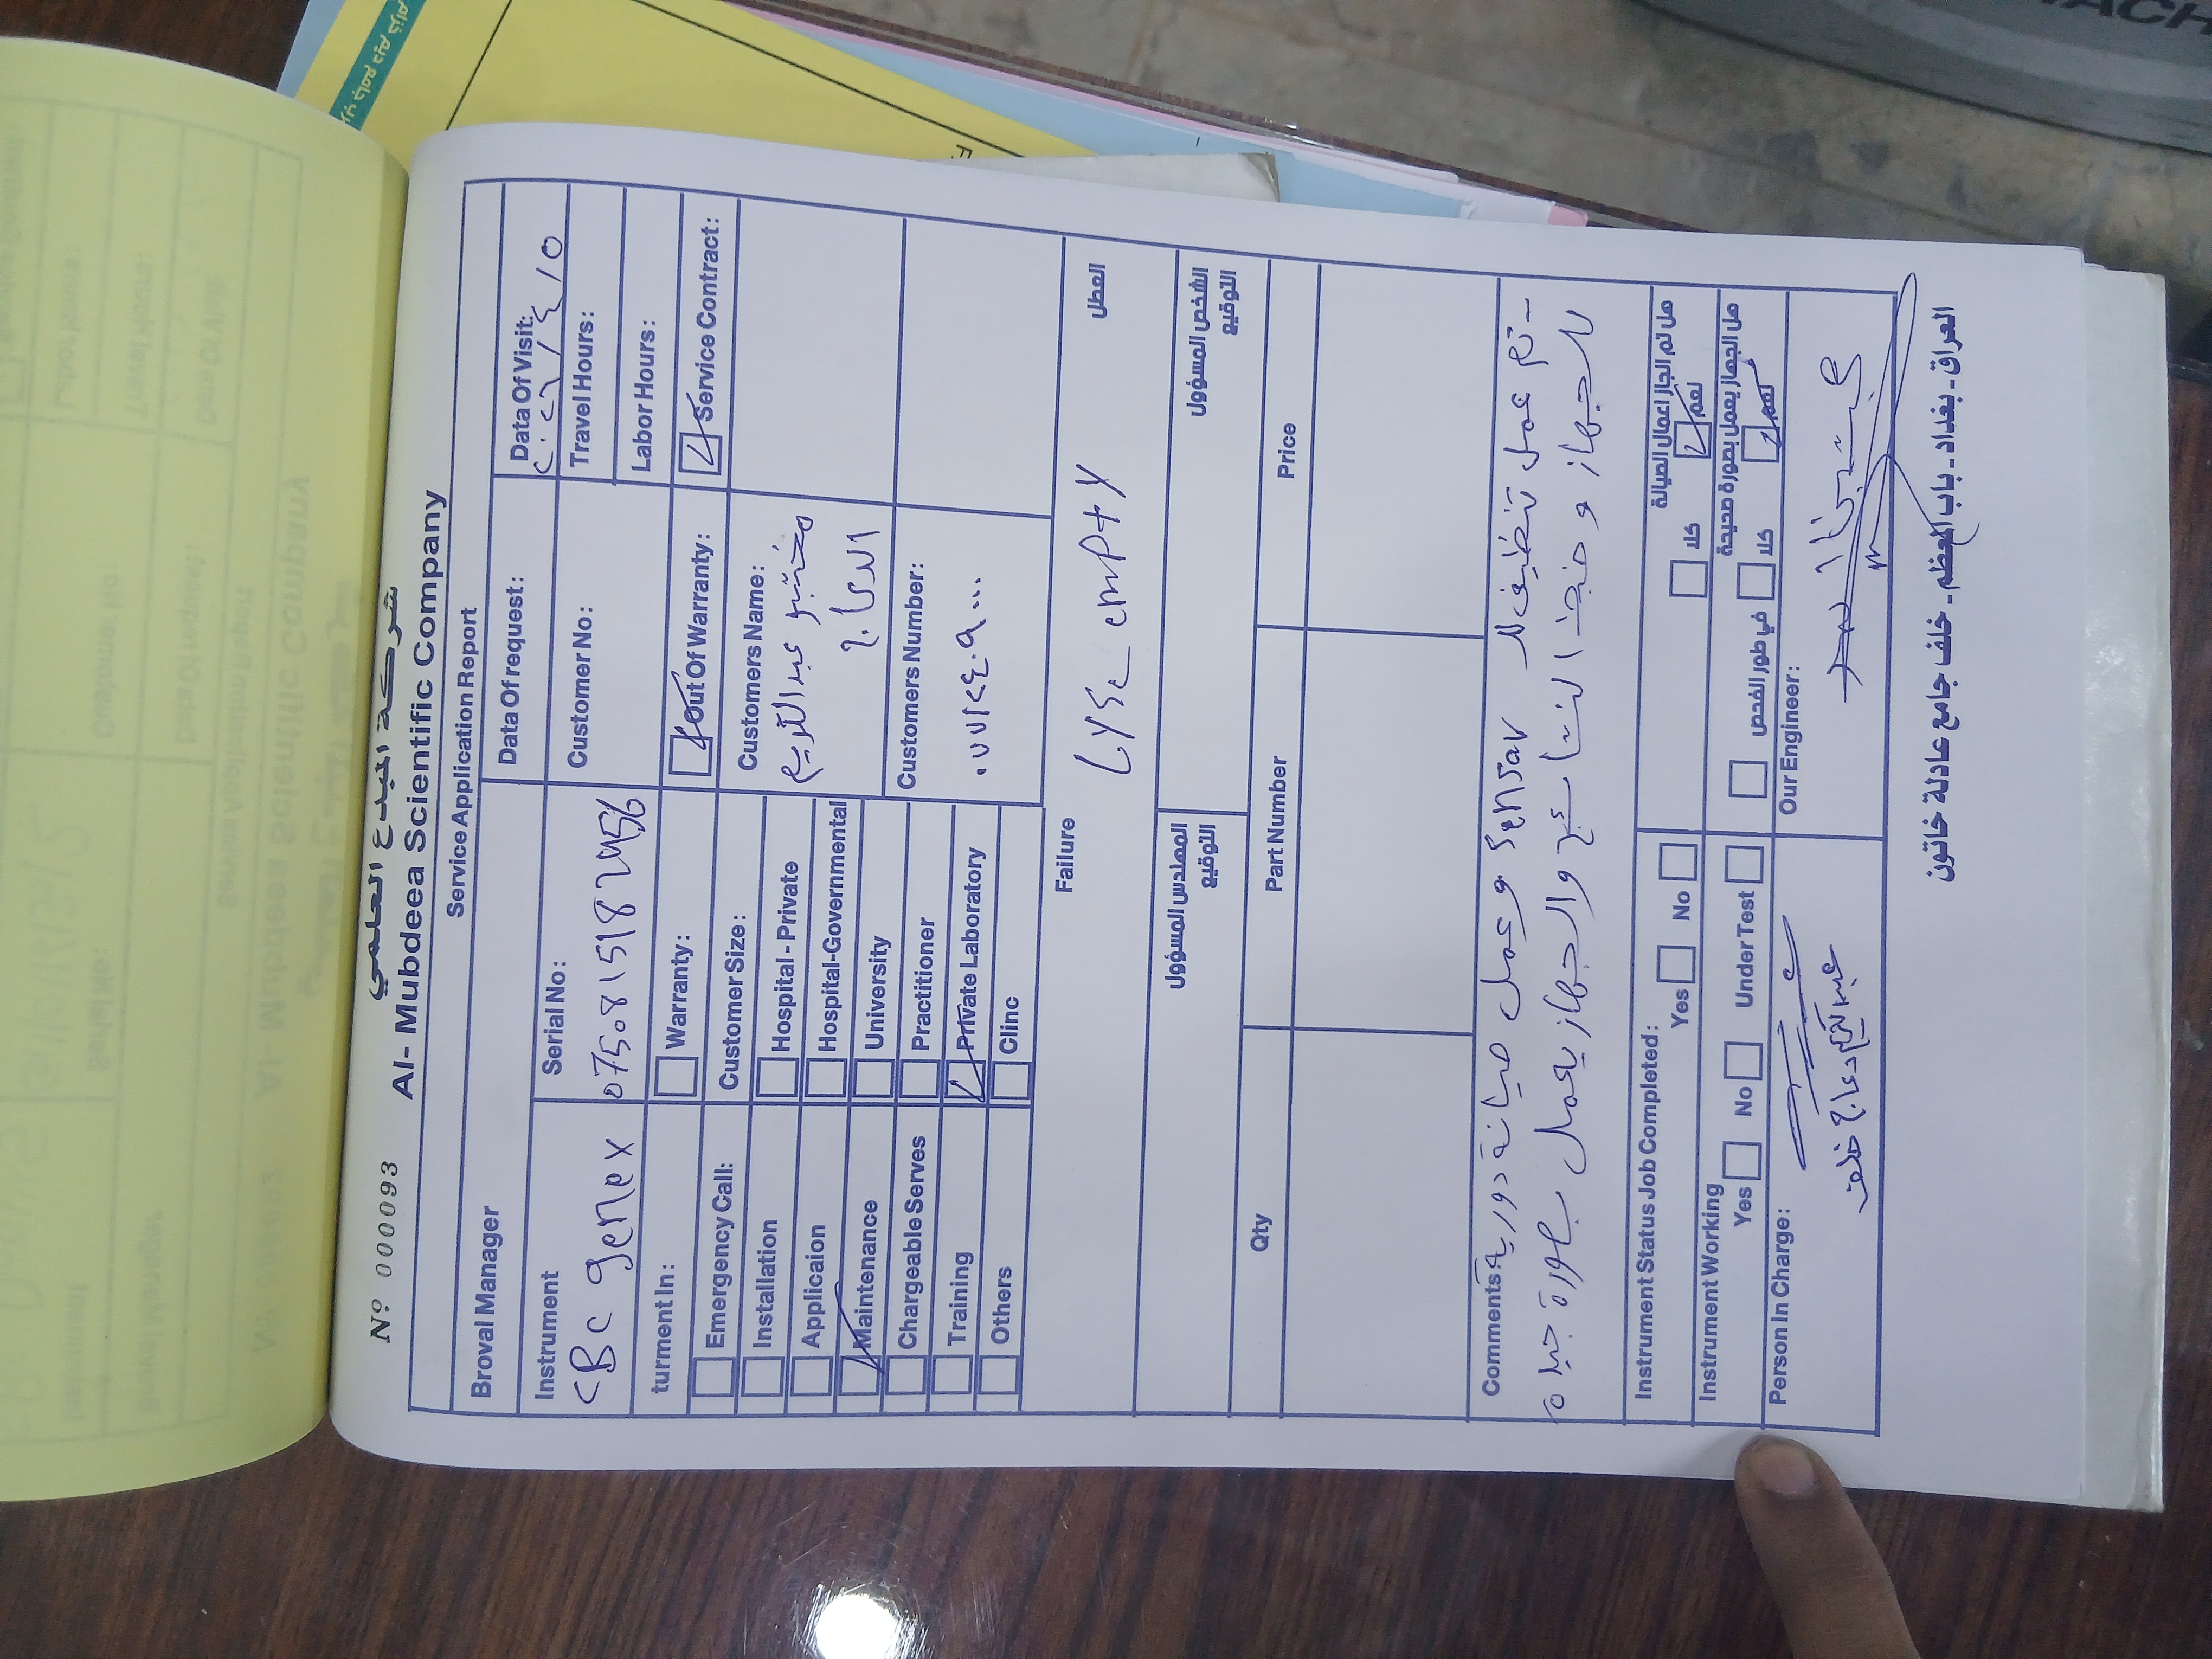 Nº 000093
شركة المبدع العلمي
Al- Mubdeea Scientific Company
Service Application Report
Broval Manager
Data Of request:
Data Of Visit:
Instrument
CBC genex
Serial No:
075081518 2956
Customer No:
Travel Hours:
Labor Hours:
turment In:
Warranty:
out Of Warranty:
Service Contract:
Emergency Call:
Installation
Applicaion
Maintenance
Chargeable Serves
Training
Others
Customer Size:
Hospital - Private
Hospital-Governmental
University
Practitioner
Private Laboratory
Clinc
Customers Name:
مختبر عبد الكريم
الدعاج
Customers Number:
Failure
العطل
Lyse empty
المهندس المسؤول
التوقيع
الشخص المسؤول
التوقيع
Qty
Part Number
Price
Comments:
- تم عمل تنظيف لل sensor وعمل صيانة دورية
للجهاز و ضبط النتائج والجهاز يعمل بصورة جيدة
Instrument Status Job Completed:
Yes
No
هل تم انجاز اعمال الصيانة
نعم
كلا
Instrument Working
Yes
No
Under Test
هل الجهاز يعمل بصورة صحيحة
نعم
كلا
في طور الفحص
Person In Charge:
Our Engineer: